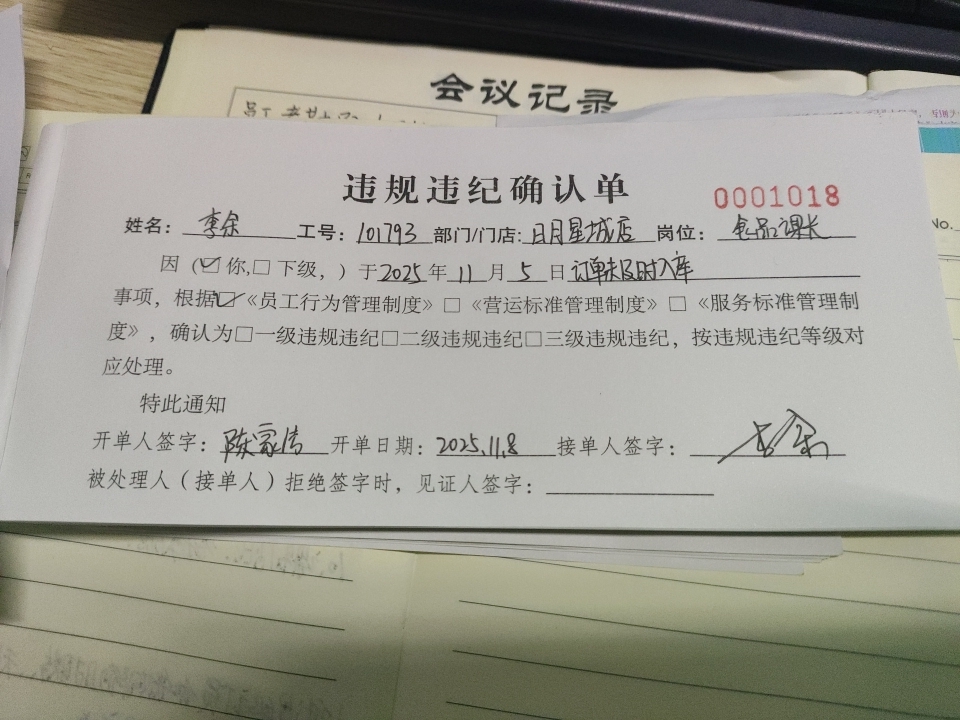 会议记录
违规违纪确认单
0001018
姓名：李余 工号：101793 部门/门店：日月星城店 岗位：食品课长
因（☑你,□下级，）于2025年11月5日订单未及时入库
事项，根据☑《员工行为管理制度》□《营运标准管理制度》□《服务标准管理制
度》，确认为□一级违规违纪□二级违规违纪□三级违规违纪，按违规违纪等级对
应处理。
特此通知
开单人签字：陈家 开单日期：2025.11.8 接单人签字：李余
被处理人（接单人）拒绝签字时，见证人签字：
No.